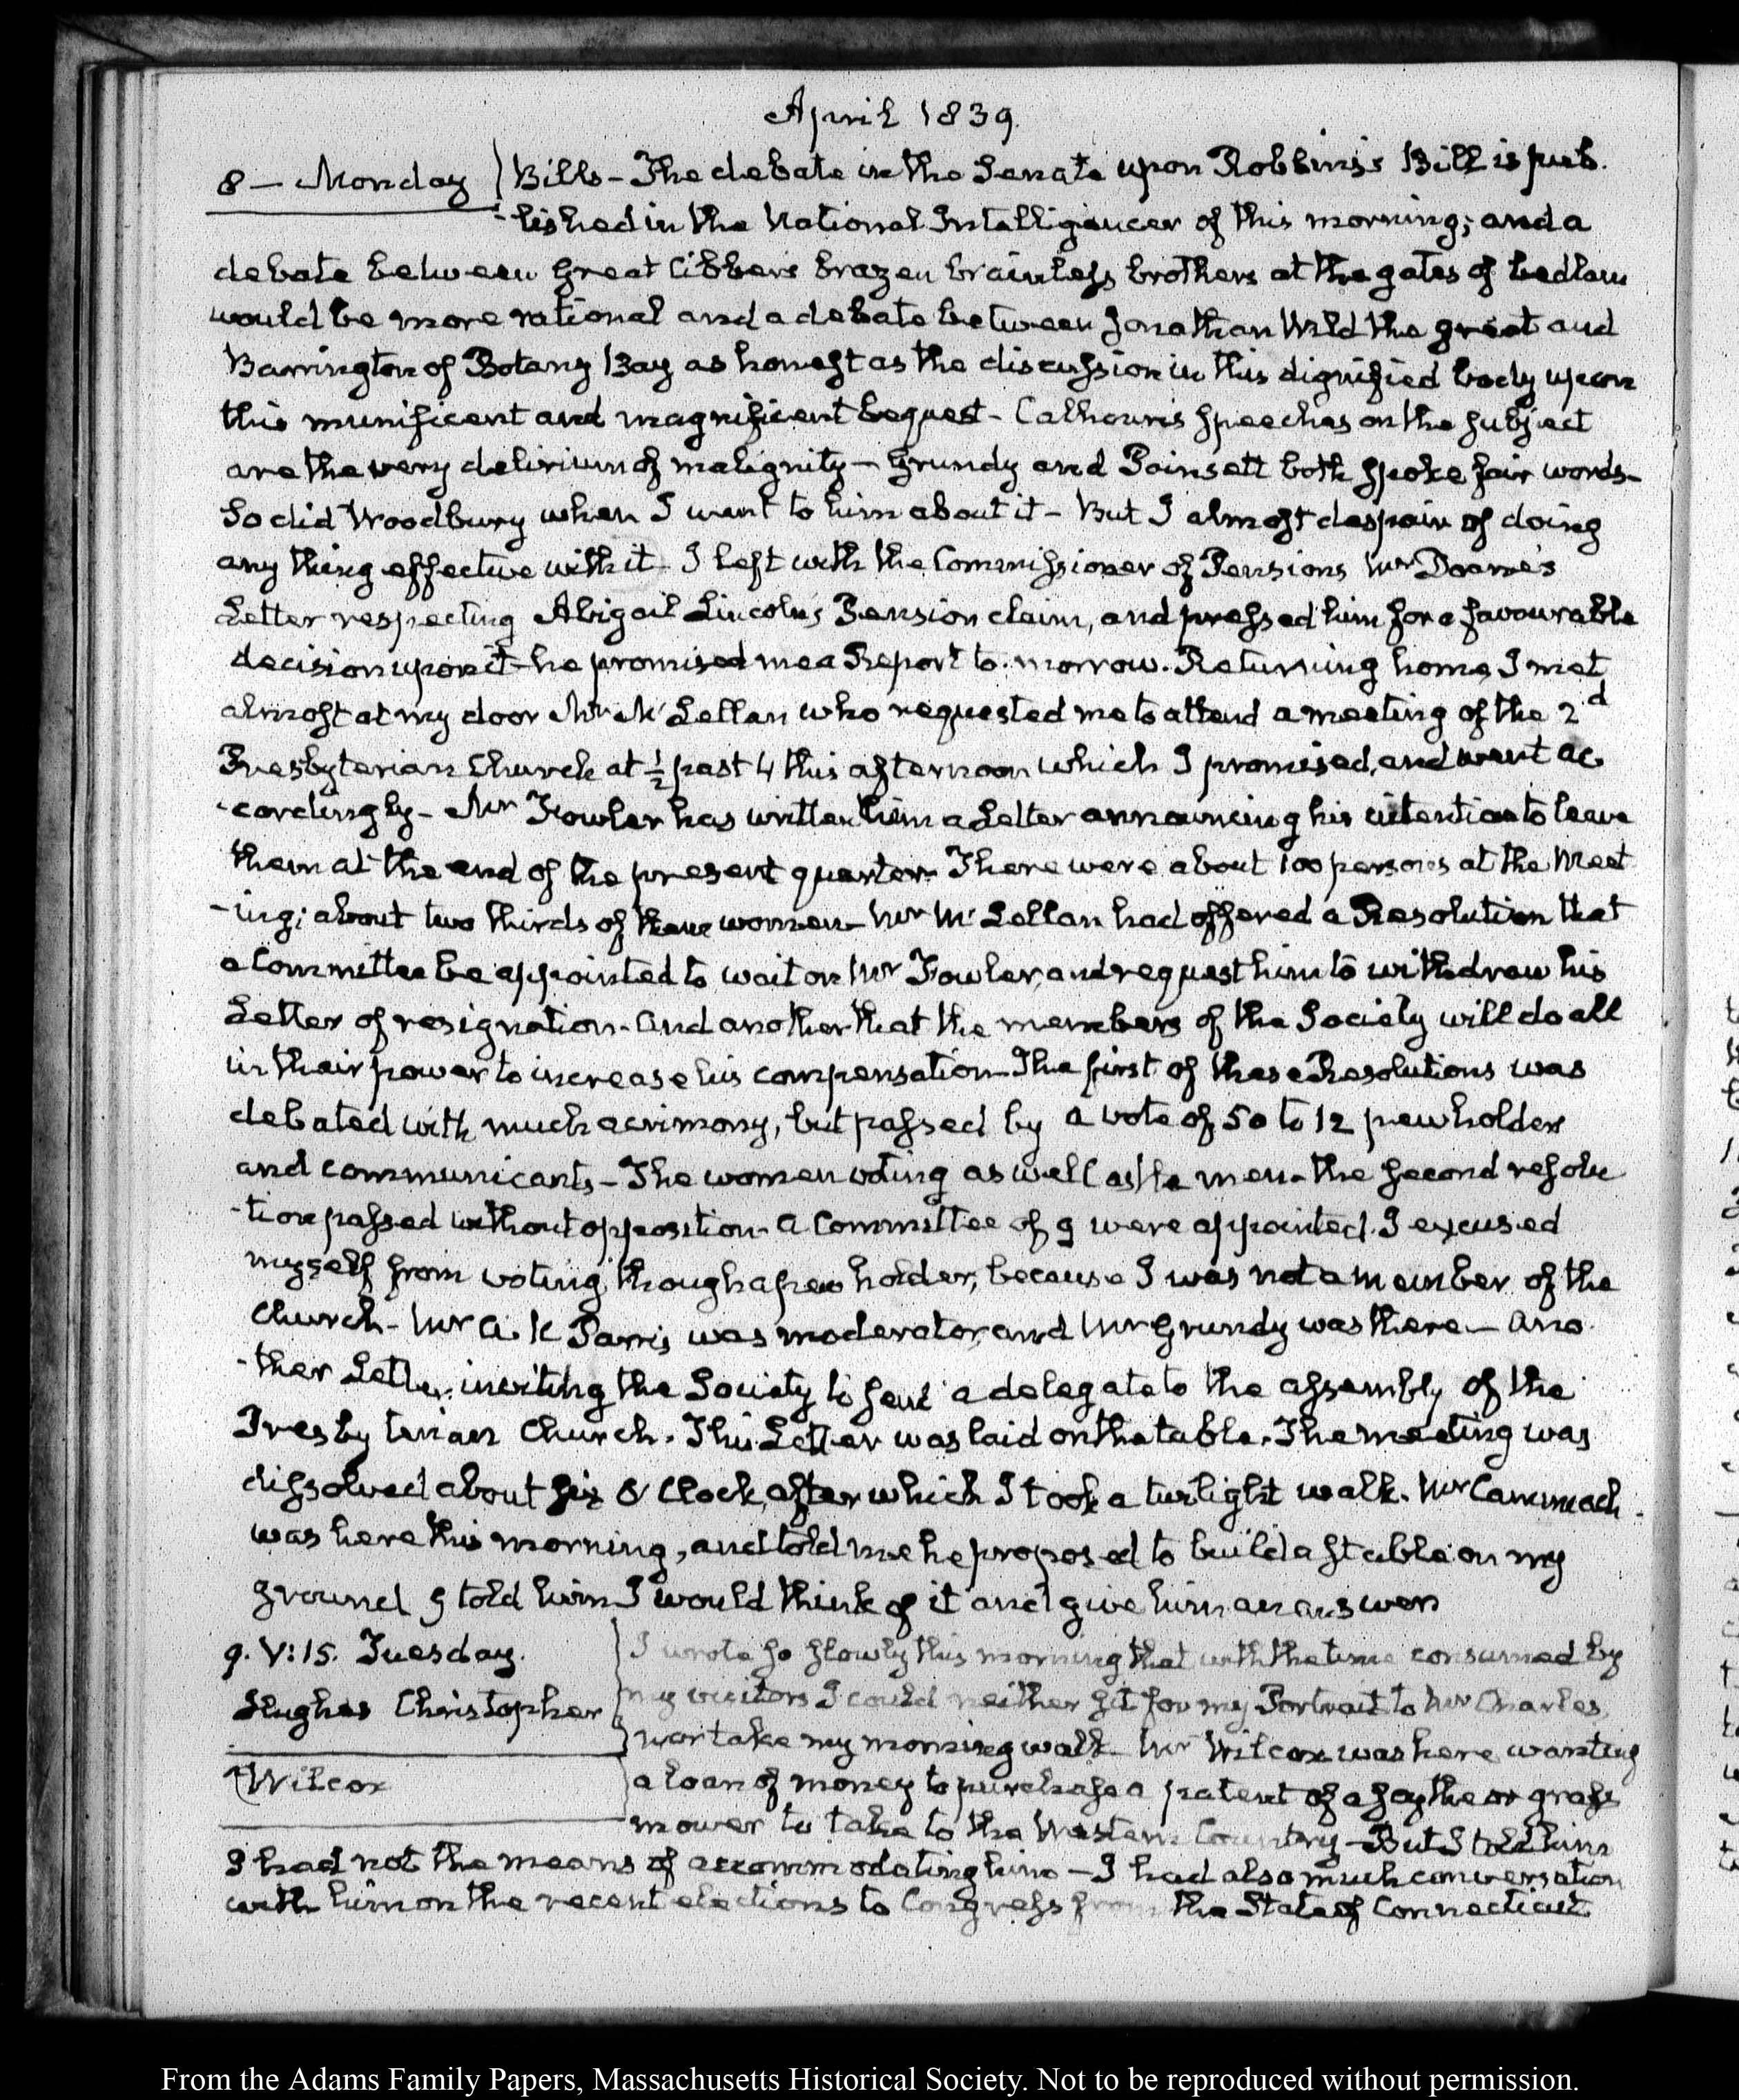 April 1839.
8 — Monday
Bills – The debate in the Senate upon Robbins's Bill is pub-
-lished in the National Intelligencer of this morning; and a
debate between great Cibber's brazen brainless brothers at the gates of bedlam
would be more rational and a debate between Jonathan Wild the great and
Barrington of Botany Bay as honest as the discussion in this dignified body upon
this munificent and magnificent bequest – Calhoun's speeches on the subject
are the very delirium of malignity – Grundy and Poinsett both spoke fair words–
So did Woodbury when I went to him about it – But I almost despair of doing
any thing effective with it – I left with the Commissioner of Pensions Mr Doane's
Letter respecting Abigail Lincoln's Pension claim, and pressed him for a favourable
decision upon it – he promised me a Report to-morrow. Returning home, I met
almost at my door Mr McLellan who requested me to attend a meeting of the 2d
Presbyterian Church at ½ past 4 this afternoon which I promised, and went ac
-cordingly – Mr Fowler has written him a Letter announcing his intention to leave
them at the end of the present quarter. There were about 100 persons at the Meet
-ing; about two thirds of them women – Mr McLellan had offered a Resolution that
a Committee be appointed to wait on Mr Fowler, and request him to withdraw his
Letter of resignation – and another that the members of the Society will do all
in their power to increase his compensation – The first of these Resolutions was
debated with much acrimony, but passed by a vote of 50 to 12 pewholders
and communicants – The women voting as well as the men – the second resolu
-tion passed without opposition – A Committee of 9 were appointed. I excused
myself from voting, though a pew holder, because I was not a member of the
Church – Mr A. K Parris was moderator, and Mr Grundy was there – Ano-
-ther Letter, inviting the Society to send a delegate to the assembly of the
Presbyterian Church. This Letter was laid on the table. The meeting was
dissolved about six O'Clock, after which I took a twilight walk. Mr Cammack
was here this morning, and told me he proposed to build a stable on my
ground I told him I would think of it and give him an answer
9. V:15. Tuesday.
Hughes Christopher
Wilcox
I wrote so slowly this morning that with the time consumed by
my visitors I could neither sit for my Portrait to Mr Charles,
nor take my morning walk – Mr Wilcox was here wanting
a loan of money to purchase a patent of a scythe or grass
mower to take to the Western Country – But I told him
I had not the means of accommodating him – I had also much conversation
with him on the recent elections to Congress from the State of Connecticut
From the Adams Family Papers, Massachusetts Historical Society. Not to be reproduced without permission.